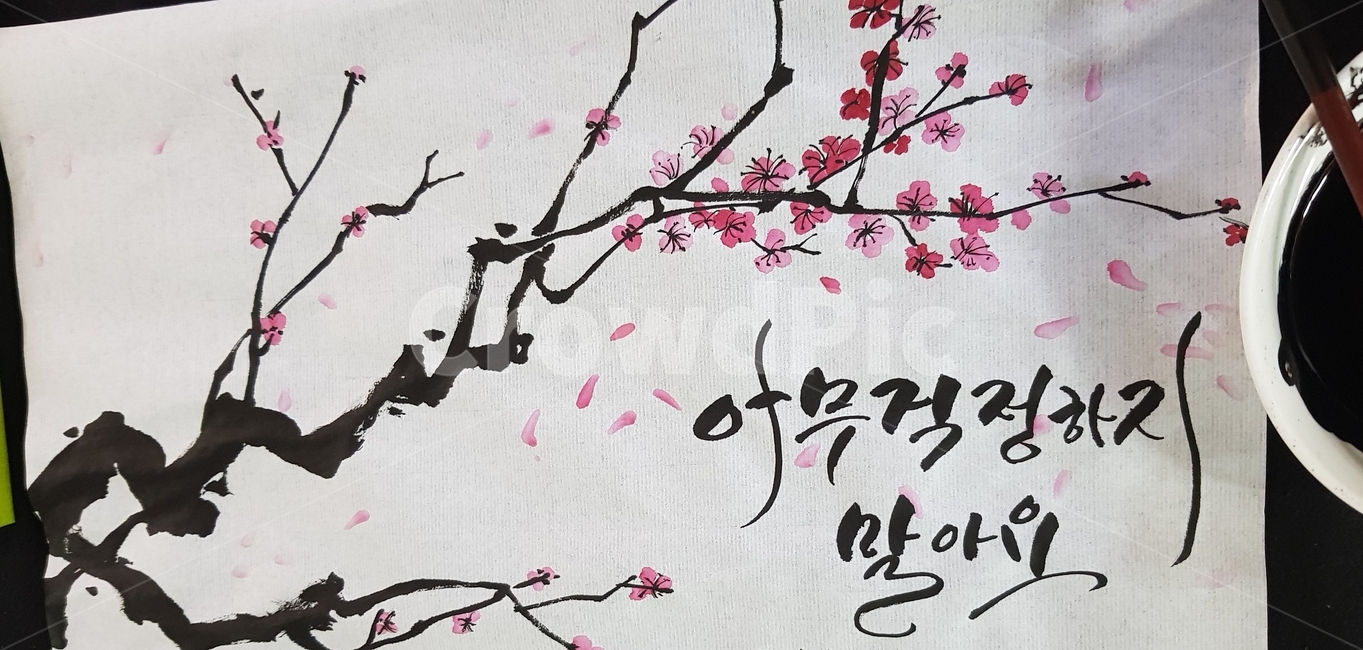 crowdpic
아무걱정하지
말아요